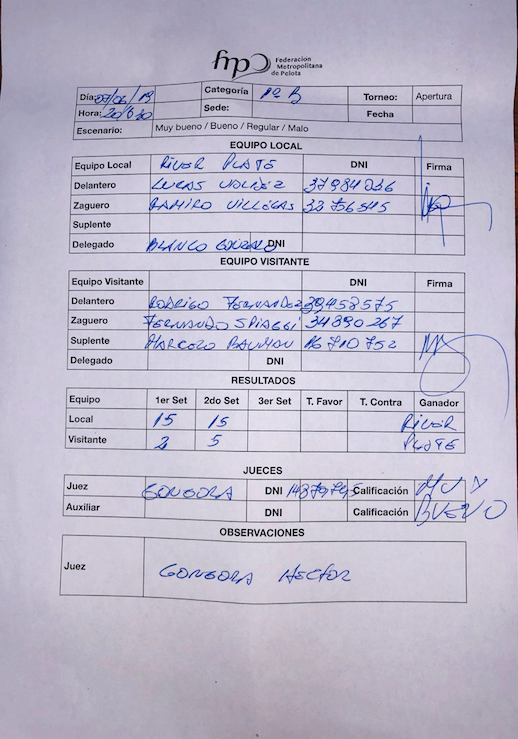 fmp Federación
Metropolitana
de Pelota
Día: 07/06/19 Categoría 1º B Torneo: Apertura
Hora: Sede: Fecha
Escenario: Muy bueno / Bueno / Regular / Malo
EQUIPO LOCAL
Equipo Local RIVER PLATE DNI Firma
Delantero LUCAS 37984036
Zaguero RAMIRO VILLEGAS
Suplente
Delegado BLANCO DNI
EQUIPO VISITANTE
Equipo Visitante DNI Firma
Delantero RODRIGO FERNANDEZ 39,458575
Zaguero FERNANDO SPIAGGI 34890267
Suplente 16710752
Delegado DNI
RESULTADOS
Equipo 1er Set 2do Set 3er Set T. Favor T. Contra Ganador
Local 15 15 RIVER
Visitante 2 5 PLATE
JUECES
Juez GONGORA DNI Calificación MUY
Auxiliar DNI Calificación BUENO
OBSERVACIONES
Juez GONGORA HECTOR